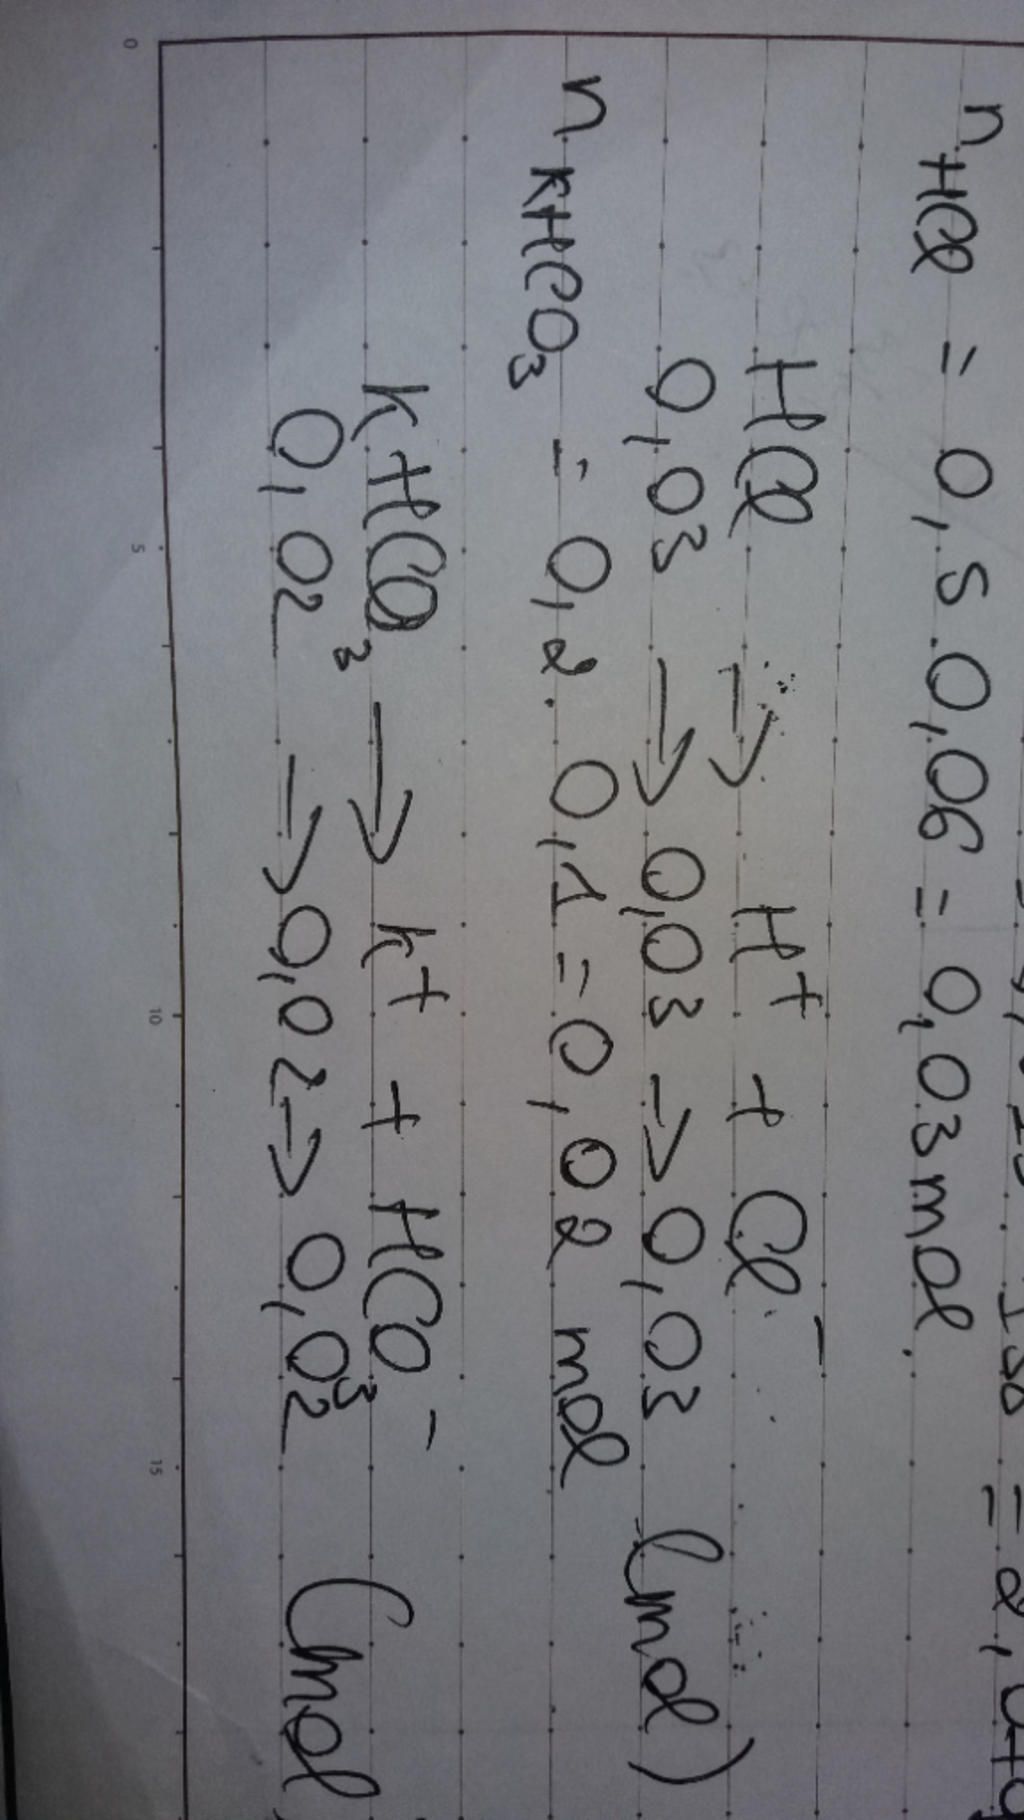 n HCl = 0,5.0,06 = 0,03 mol.
HCl → H⁺ + Cl⁻
0,03 → 0,03 → 0,03 (mol)
n KHCO₃ = 0,2.0,1 = 0,02 mol
KHCO₃ → K⁺ + HCO₃⁻
0,02 → 0,02 → 0,02 (mol
0
5
10
15